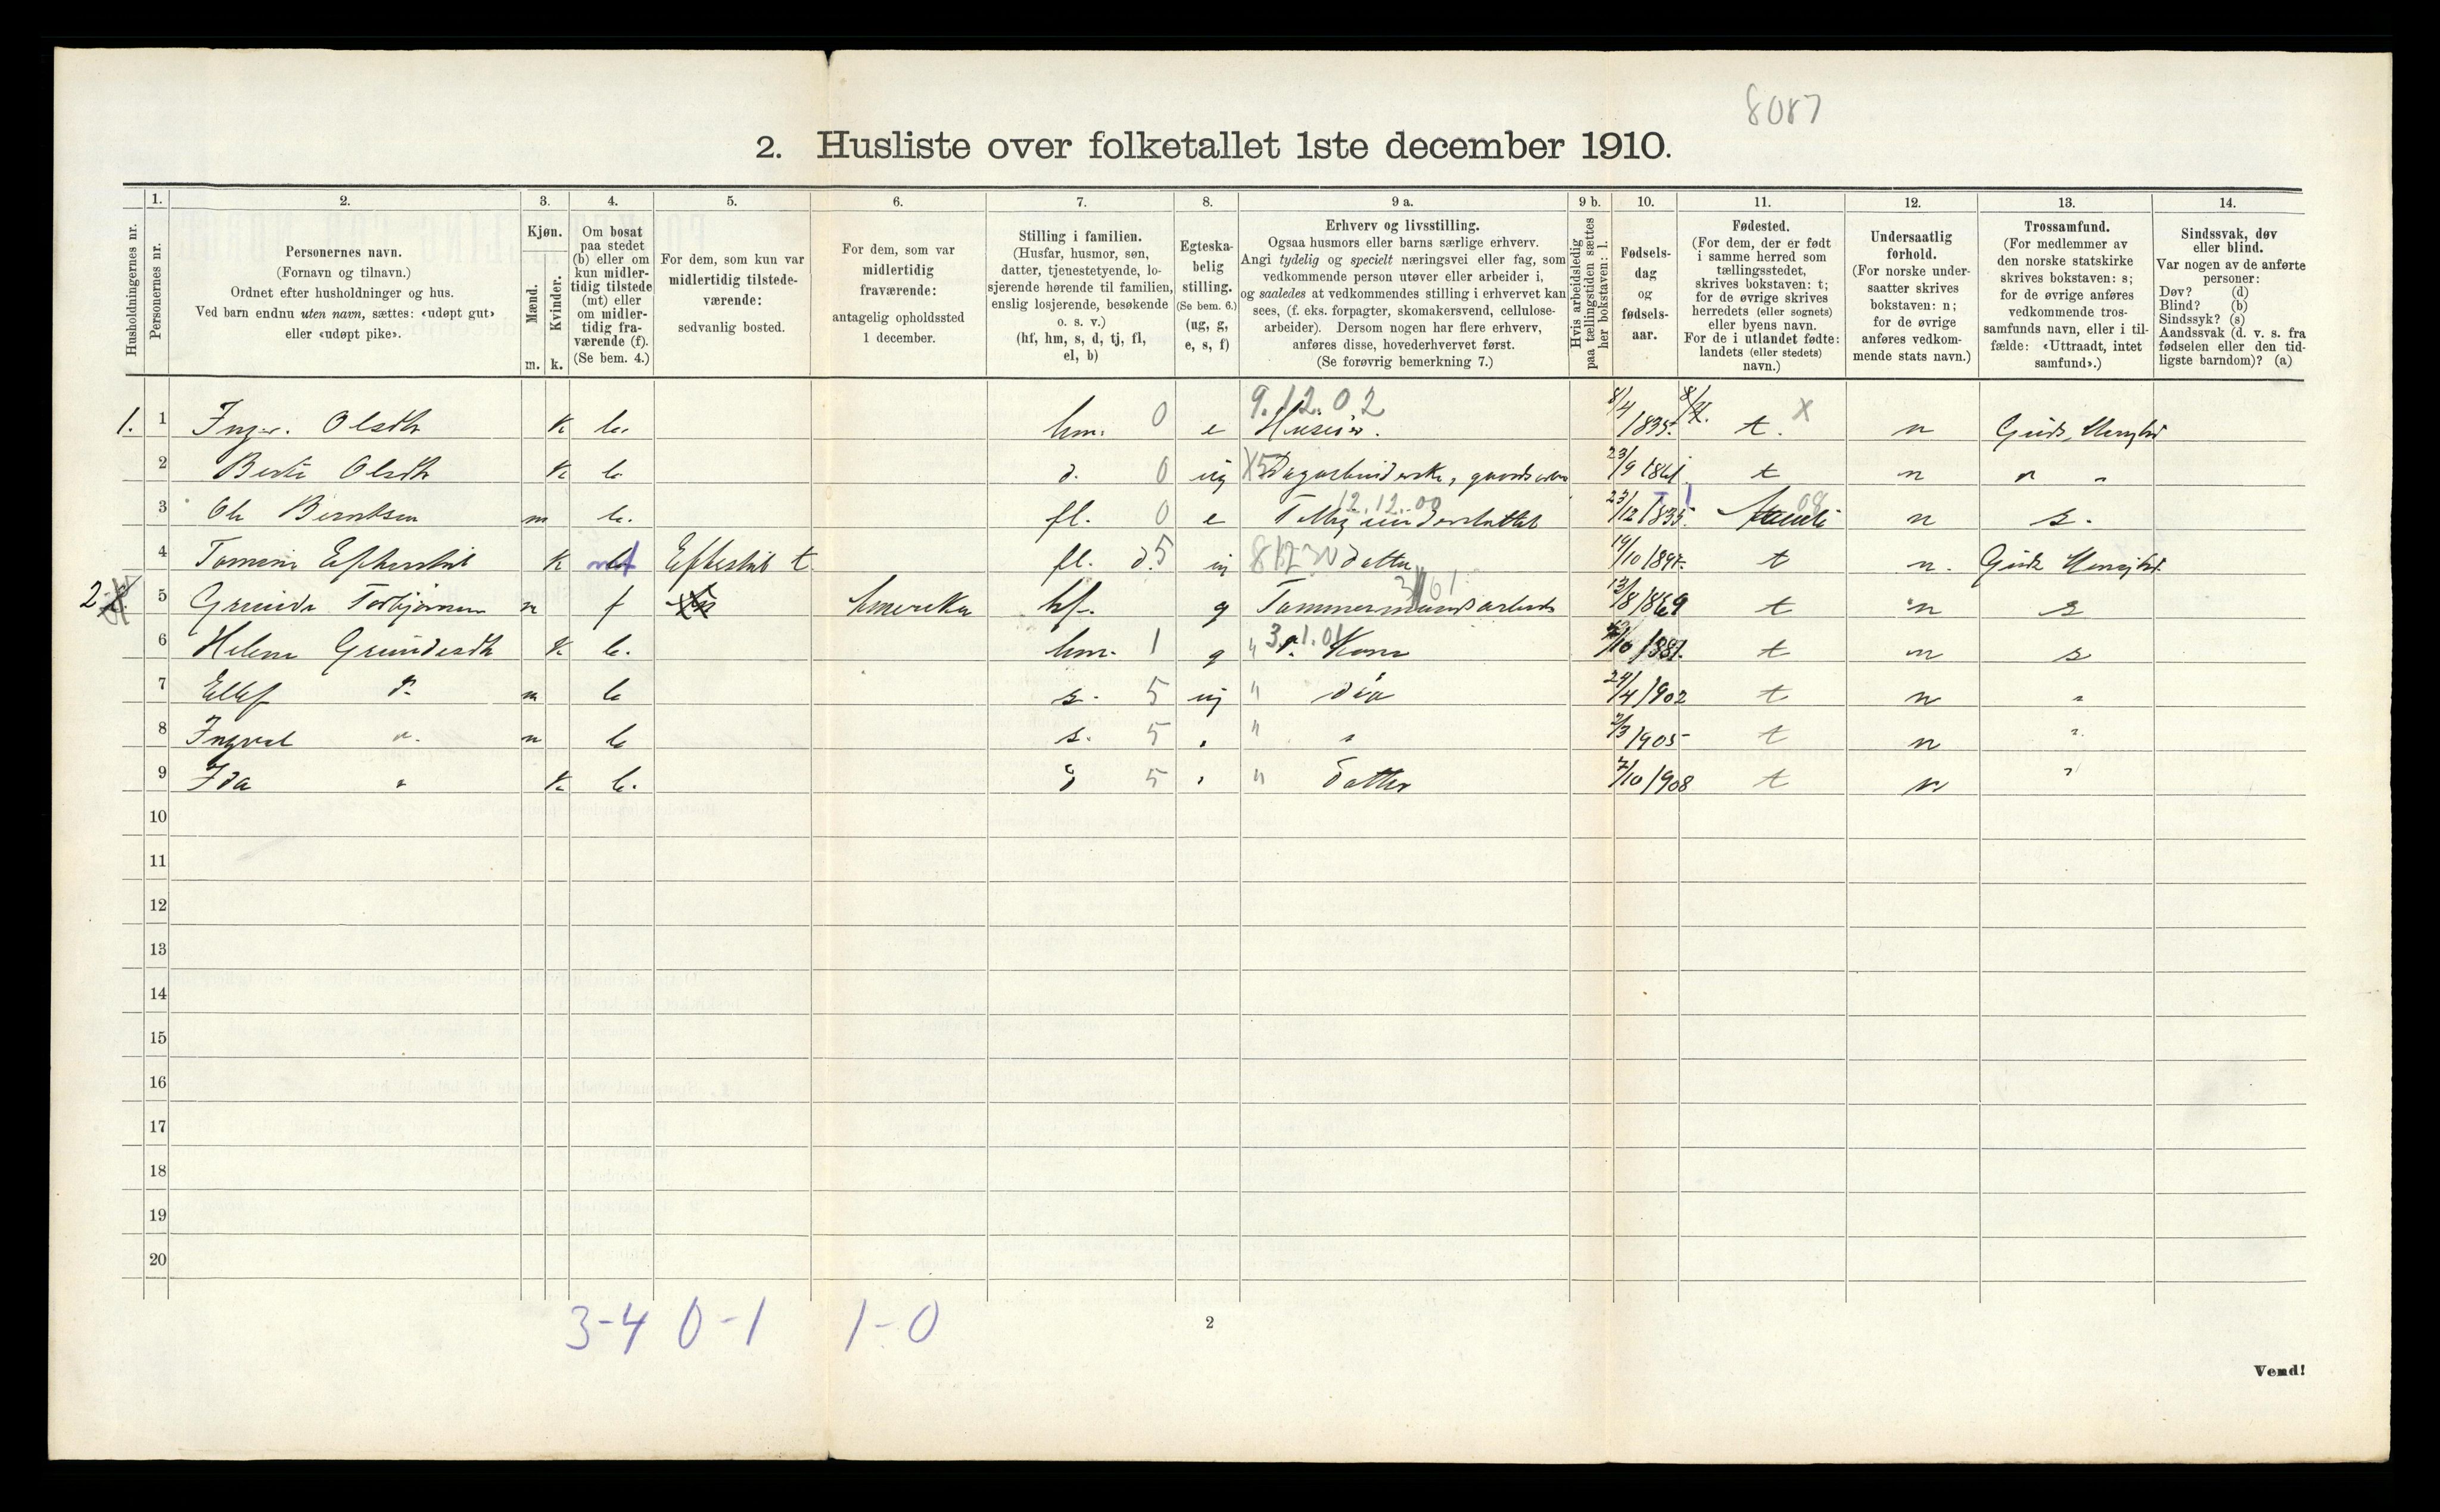 8087
2. Husliste over folketallet 1ste december 1910.
Husholdningernes nr.
1.
Personernes nr.
2.
Personernes navn.
(Fornavn og tilnavn.)
Ordnet efter husholdninger og hus.
Ved barn endnu uten navn, sættes: «udøpt gut»
eller «udøpt pike».
3.
Kjøn.
Mænd.
Kvinder.
m. k.
4.
Om bosat
paa stedet
(b) eller om
kun midler-
tidig tilstede
(mt) eller
om midler-
tidig fra-
værende (f).
(Se bem. 4.)
5.
For dem, som kun var
midlertidig tilstede-
værende:
sedvanlig bosted.
6.
For dem, som var
midlertidig
fraværende:
antagelig opholdssted
1 december.
7.
Stilling i familien.
(Husfar, husmor, søn,
datter, tjenestetyende, lo-
sjerende hørende til familien,
enslig losjerende, besøkende
o. s. v.)
(hf, hm, s, d, tj, fl,
el, b)
8.
Egteska-
belig
stilling.
(Se bem. 6.)
(ug, g,
e, s, f)
9 a.
Erhverv og livsstilling.
Ogsaa husmors eller barns særlige erhverv.
Angi tydelig og specielt næringsvei eller fag, som
vedkommende person utøver eller arbeider i,
og saaledes at vedkommendes stilling i erhvervet kan
sees, (f. eks. forpagter, skomakersvend, cellulose-
arbeider). Dersom nogen har flere erhverv,
anføres disse, hovederhvervet først.
(Se forøvrig bemerkning 7.)
9 b.
Hvis arbeidsledig
paa tællingstiden sættes
her bokstaven: l.
10.
Fødsels-
dag
og
fødsels-
aar.
11.
Fødested.
(For dem, der er født
i samme herred som
tællingsstedet,
skrives bokstaven: t;
for de øvrige skrives
herredets (eller sognets)
eller byens navn.
For de i utlandet fødte:
landets (eller stedets)
navn.)
12.
Undersaatlig
forhold.
(For norske under-
saatter skrives
bokstaven: n;
for de øvrige
anføres vedkom-
mende stats navn.)
13.
Trossamfund.
(For medlemmer av
den norske statskirke
skrives bokstaven: s;
for de øvrige anføres
vedkommende tros-
samfunds navn, eller i til-
fælde: «Uttraadt, intet
samfund».)
14.
Sindssvak, døv
eller blind.
Var nogen av de anførte
personer:
Døv? (d)
Blind? (b)
Sindssyk? (s)
Aandssvak (d. v. s. fra
fødselen eller den tid-
ligste barndom)? (a)
9.12.02
1. 1 Olsdtr k b. hm. 0 e 8/4 1835. t. X n
2 Olsdtr k b. d. 0 ug X5 23/9 1861 t n " "
12.12.00
3 Ole Berntsen m b. fl. 0 e 23/12 1835 08 n s.
4 k mt t fl. d. 5 ug datter 19/10 t n.
2 5 m f Amerika hf. g Tømmermandsarbeide 13/8 1869 t n s
3.1.01
6 Helene k b. hm. 1 g " Kone /10 1881. t n s
7 Ellef m b s. 5 ug " 24/4 1902 t n "
8 Ingval " m b s. 5 " " " 2/3 1905 t n "
9 Ida " k b. d 5 " " datter 7/10 1908 t n "
10
11
12
13
14
15
16
17
18
19
20
3-4 0-1 1-0
2
Vend!